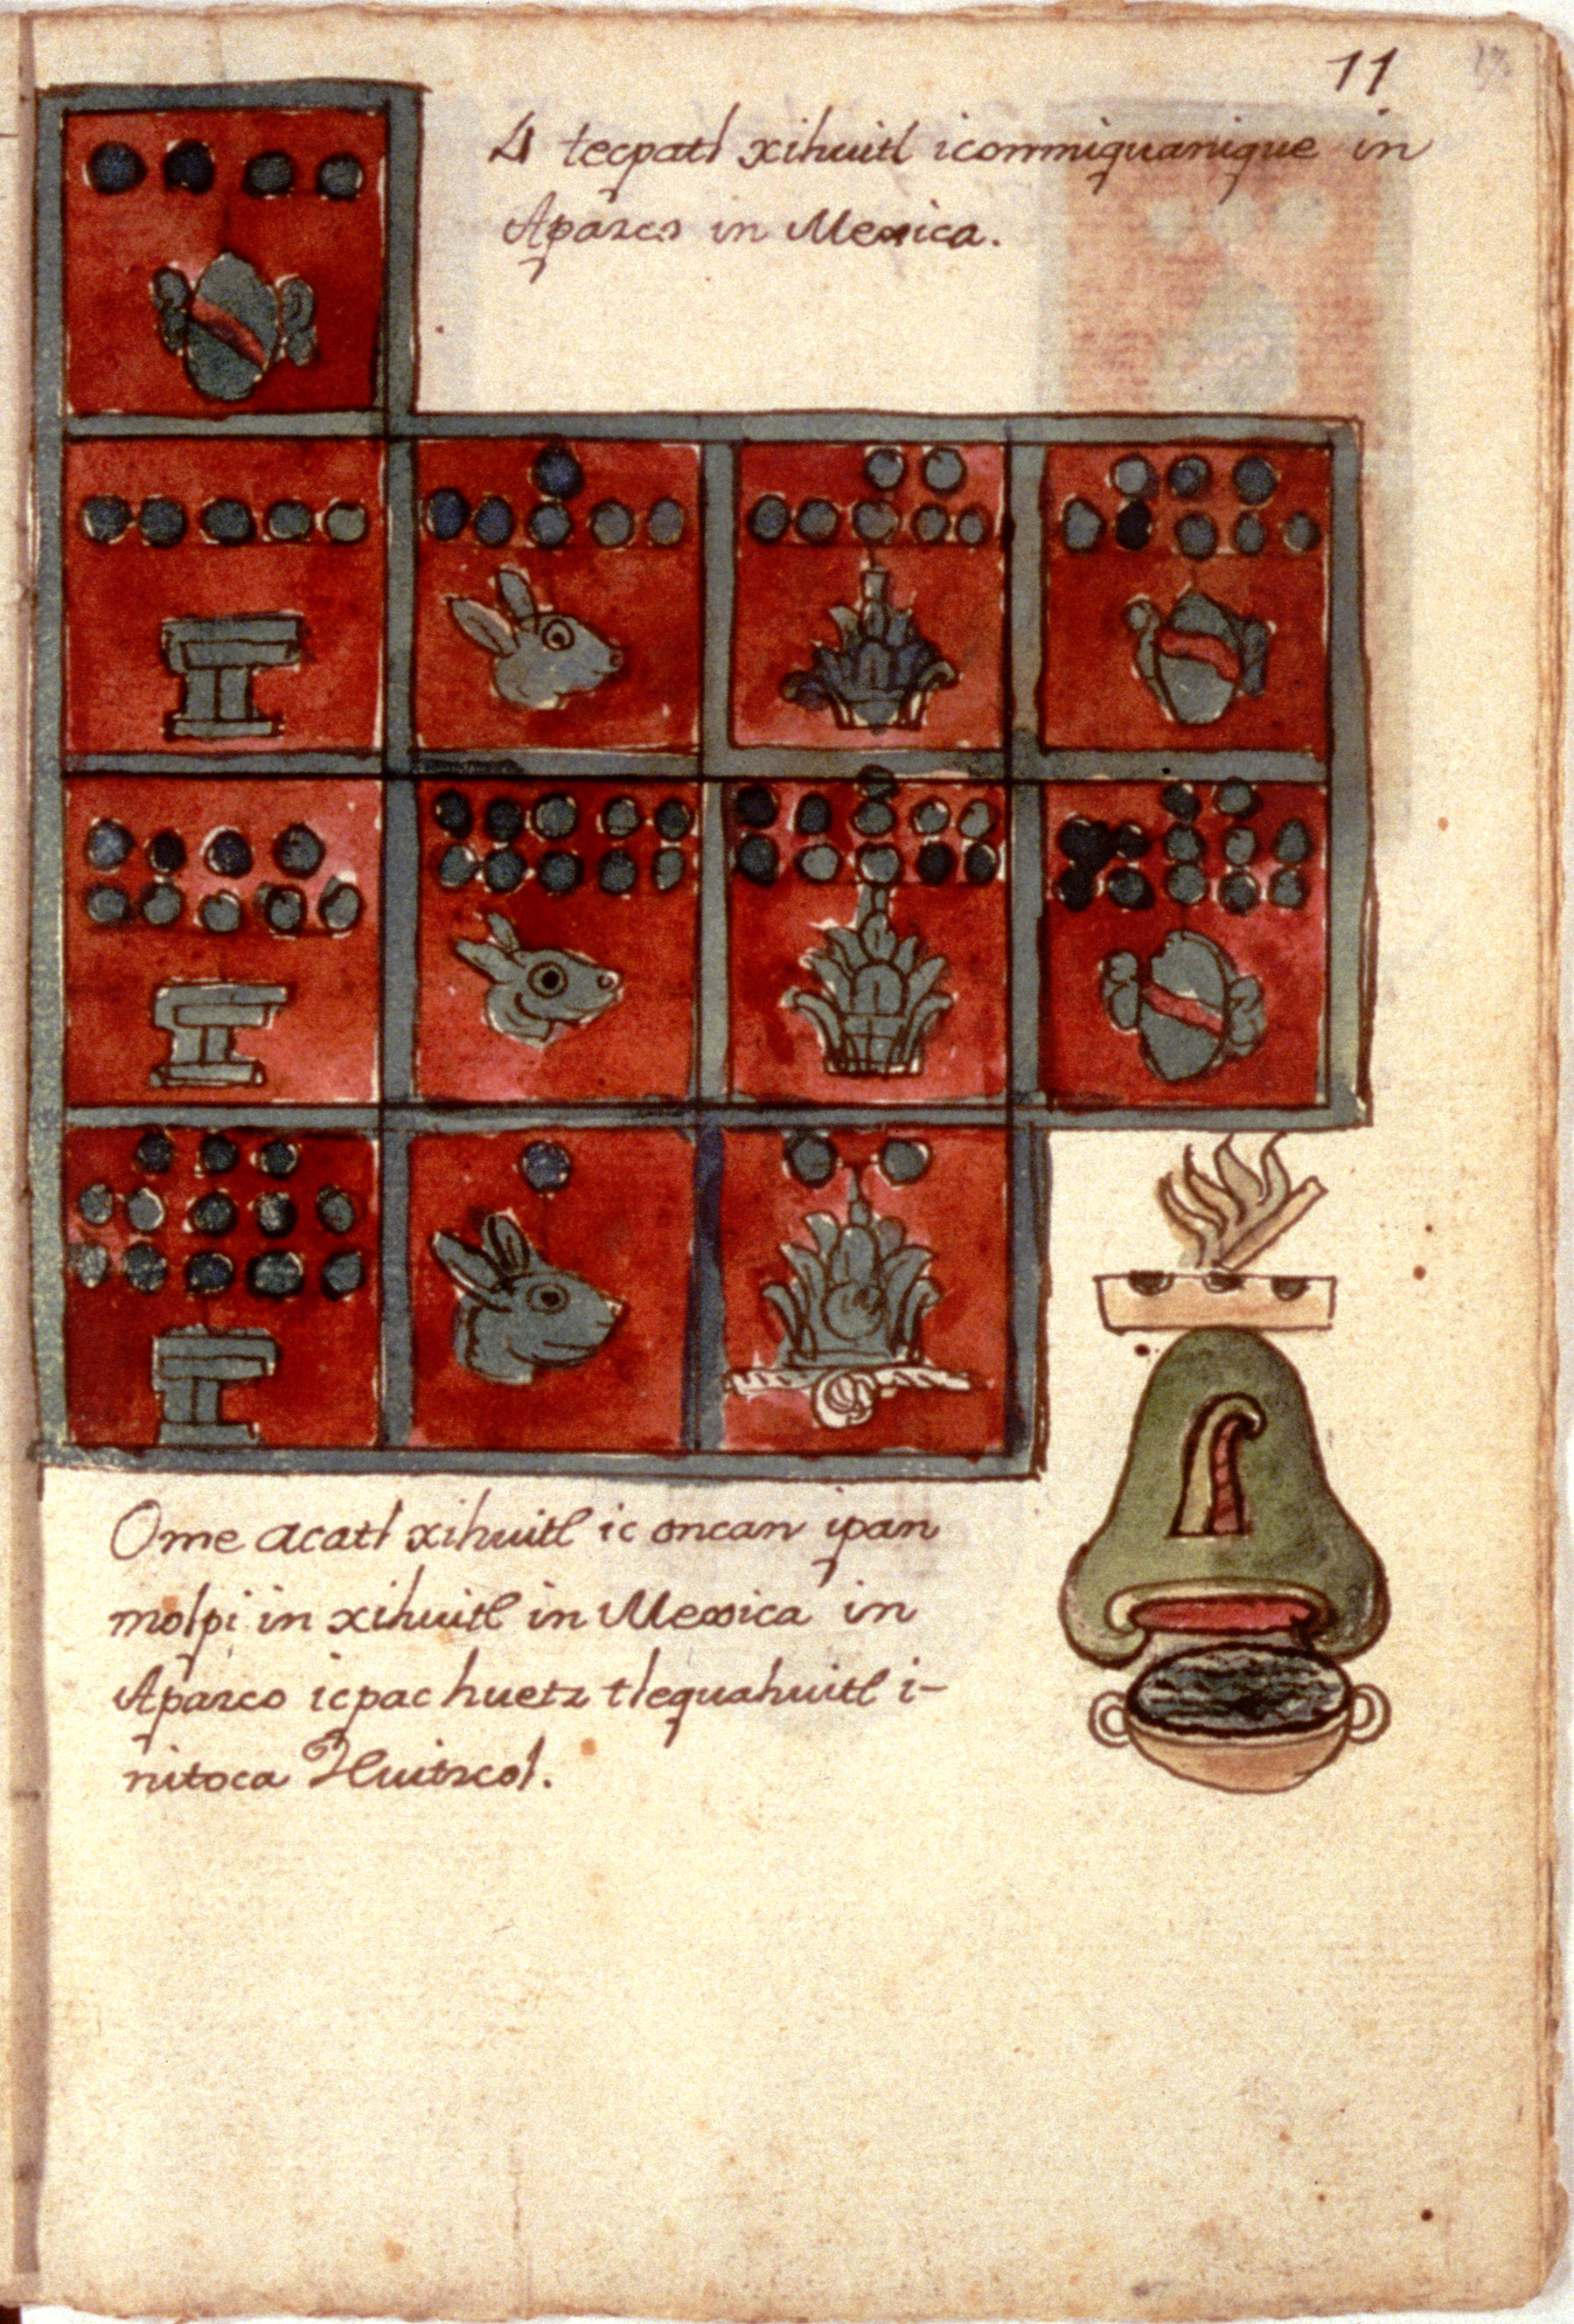 11
4 tecpatl xihuitl icommiquanique in
Apazco in Mexica.
Ome acatl xihuitl ic oncan ipan
molpi in xihuitl in Mexica in
Apazco icpac huetz tlequahuitl i-
nitoca Huitzcol.